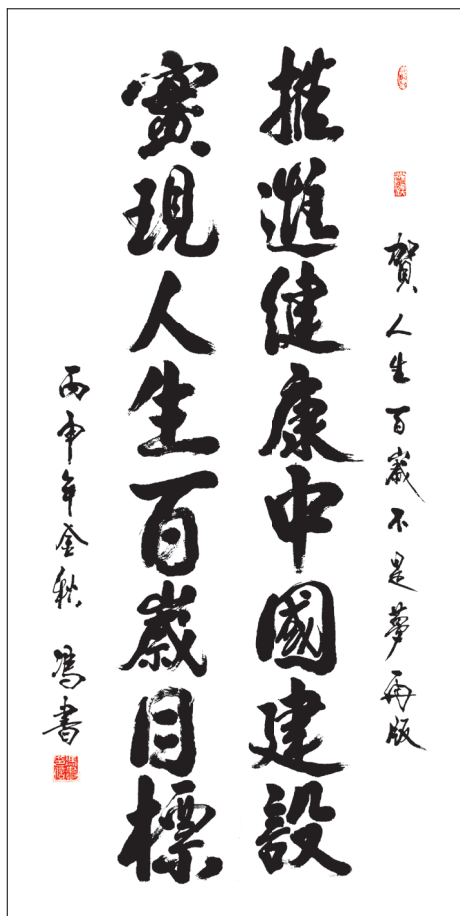 賀人生百歲不是夢再版
推進健康中國建設
實現人生百歲目標
丙申年金秋 馮書